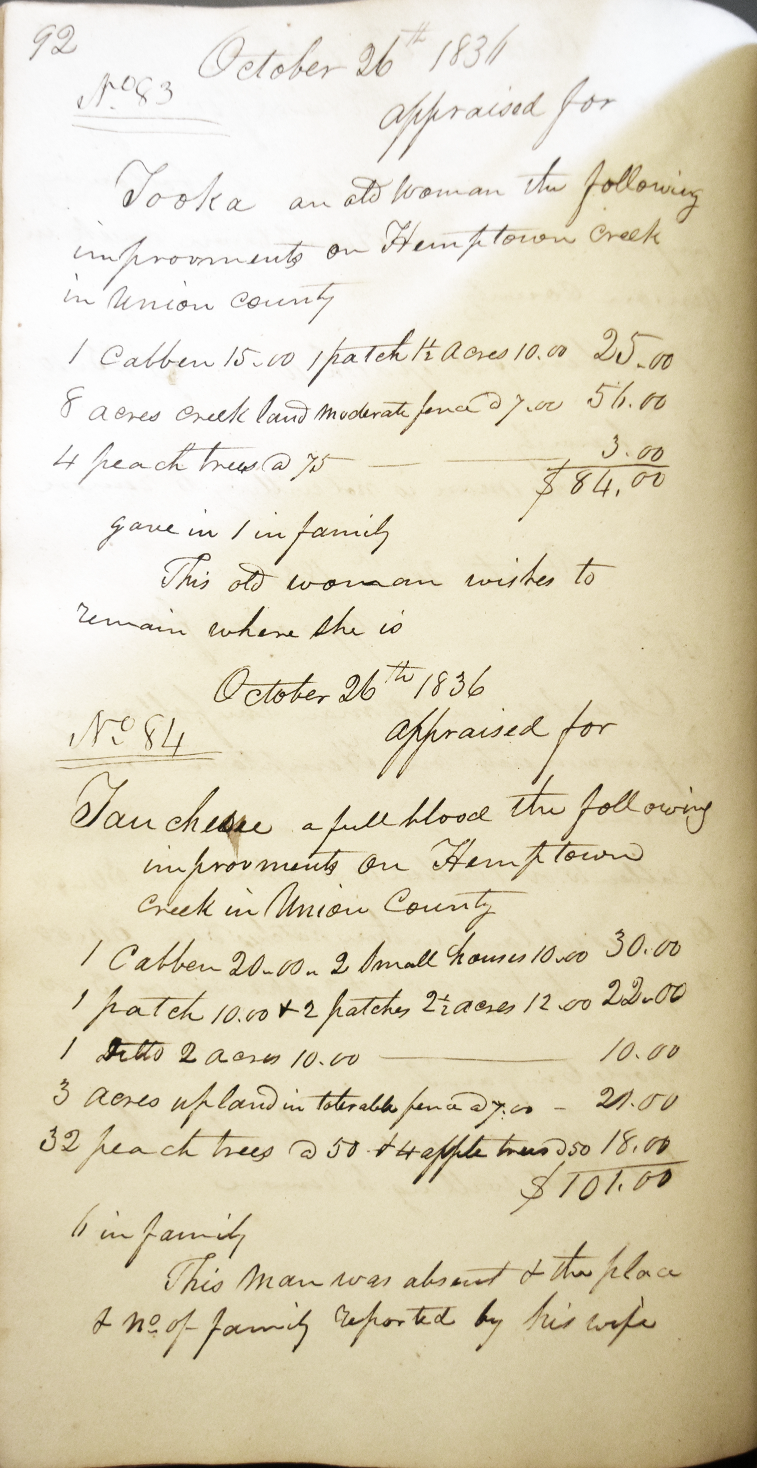 92
October 26th 1836
No 83
appraised for
Tooka an old woman the following
improvments on Hemptown Creek
in Union county
1 Cabben 15.00 1 patch 1½ acres 10.00 25.00
8 acres creek land moderate fence @ 7.00 56.00
4 peach trees @ 75 — — 3.00
$ 84.00
gave in 1 in family
This old woman wishes to
remain where she is
October 26th 1836
No 84
appraised for
a full blood the following
improvments on Hemptown
Creek in Union County
1 Cabben 20.00 2 Small houses 10.00 30.00
1 patch 10.00 & 2 patches 2½ acres 12.00 22.00
1 Ditto 2 acres 10.00 — 10.00
3 acres upland in tolerable fence @ 7.00 – 21.00
32 peach trees @ 50 & 4 apple trees @ 50 18.00
$ 101.00
6 in family
This Man was absent & the place
& no of family reported by his wife